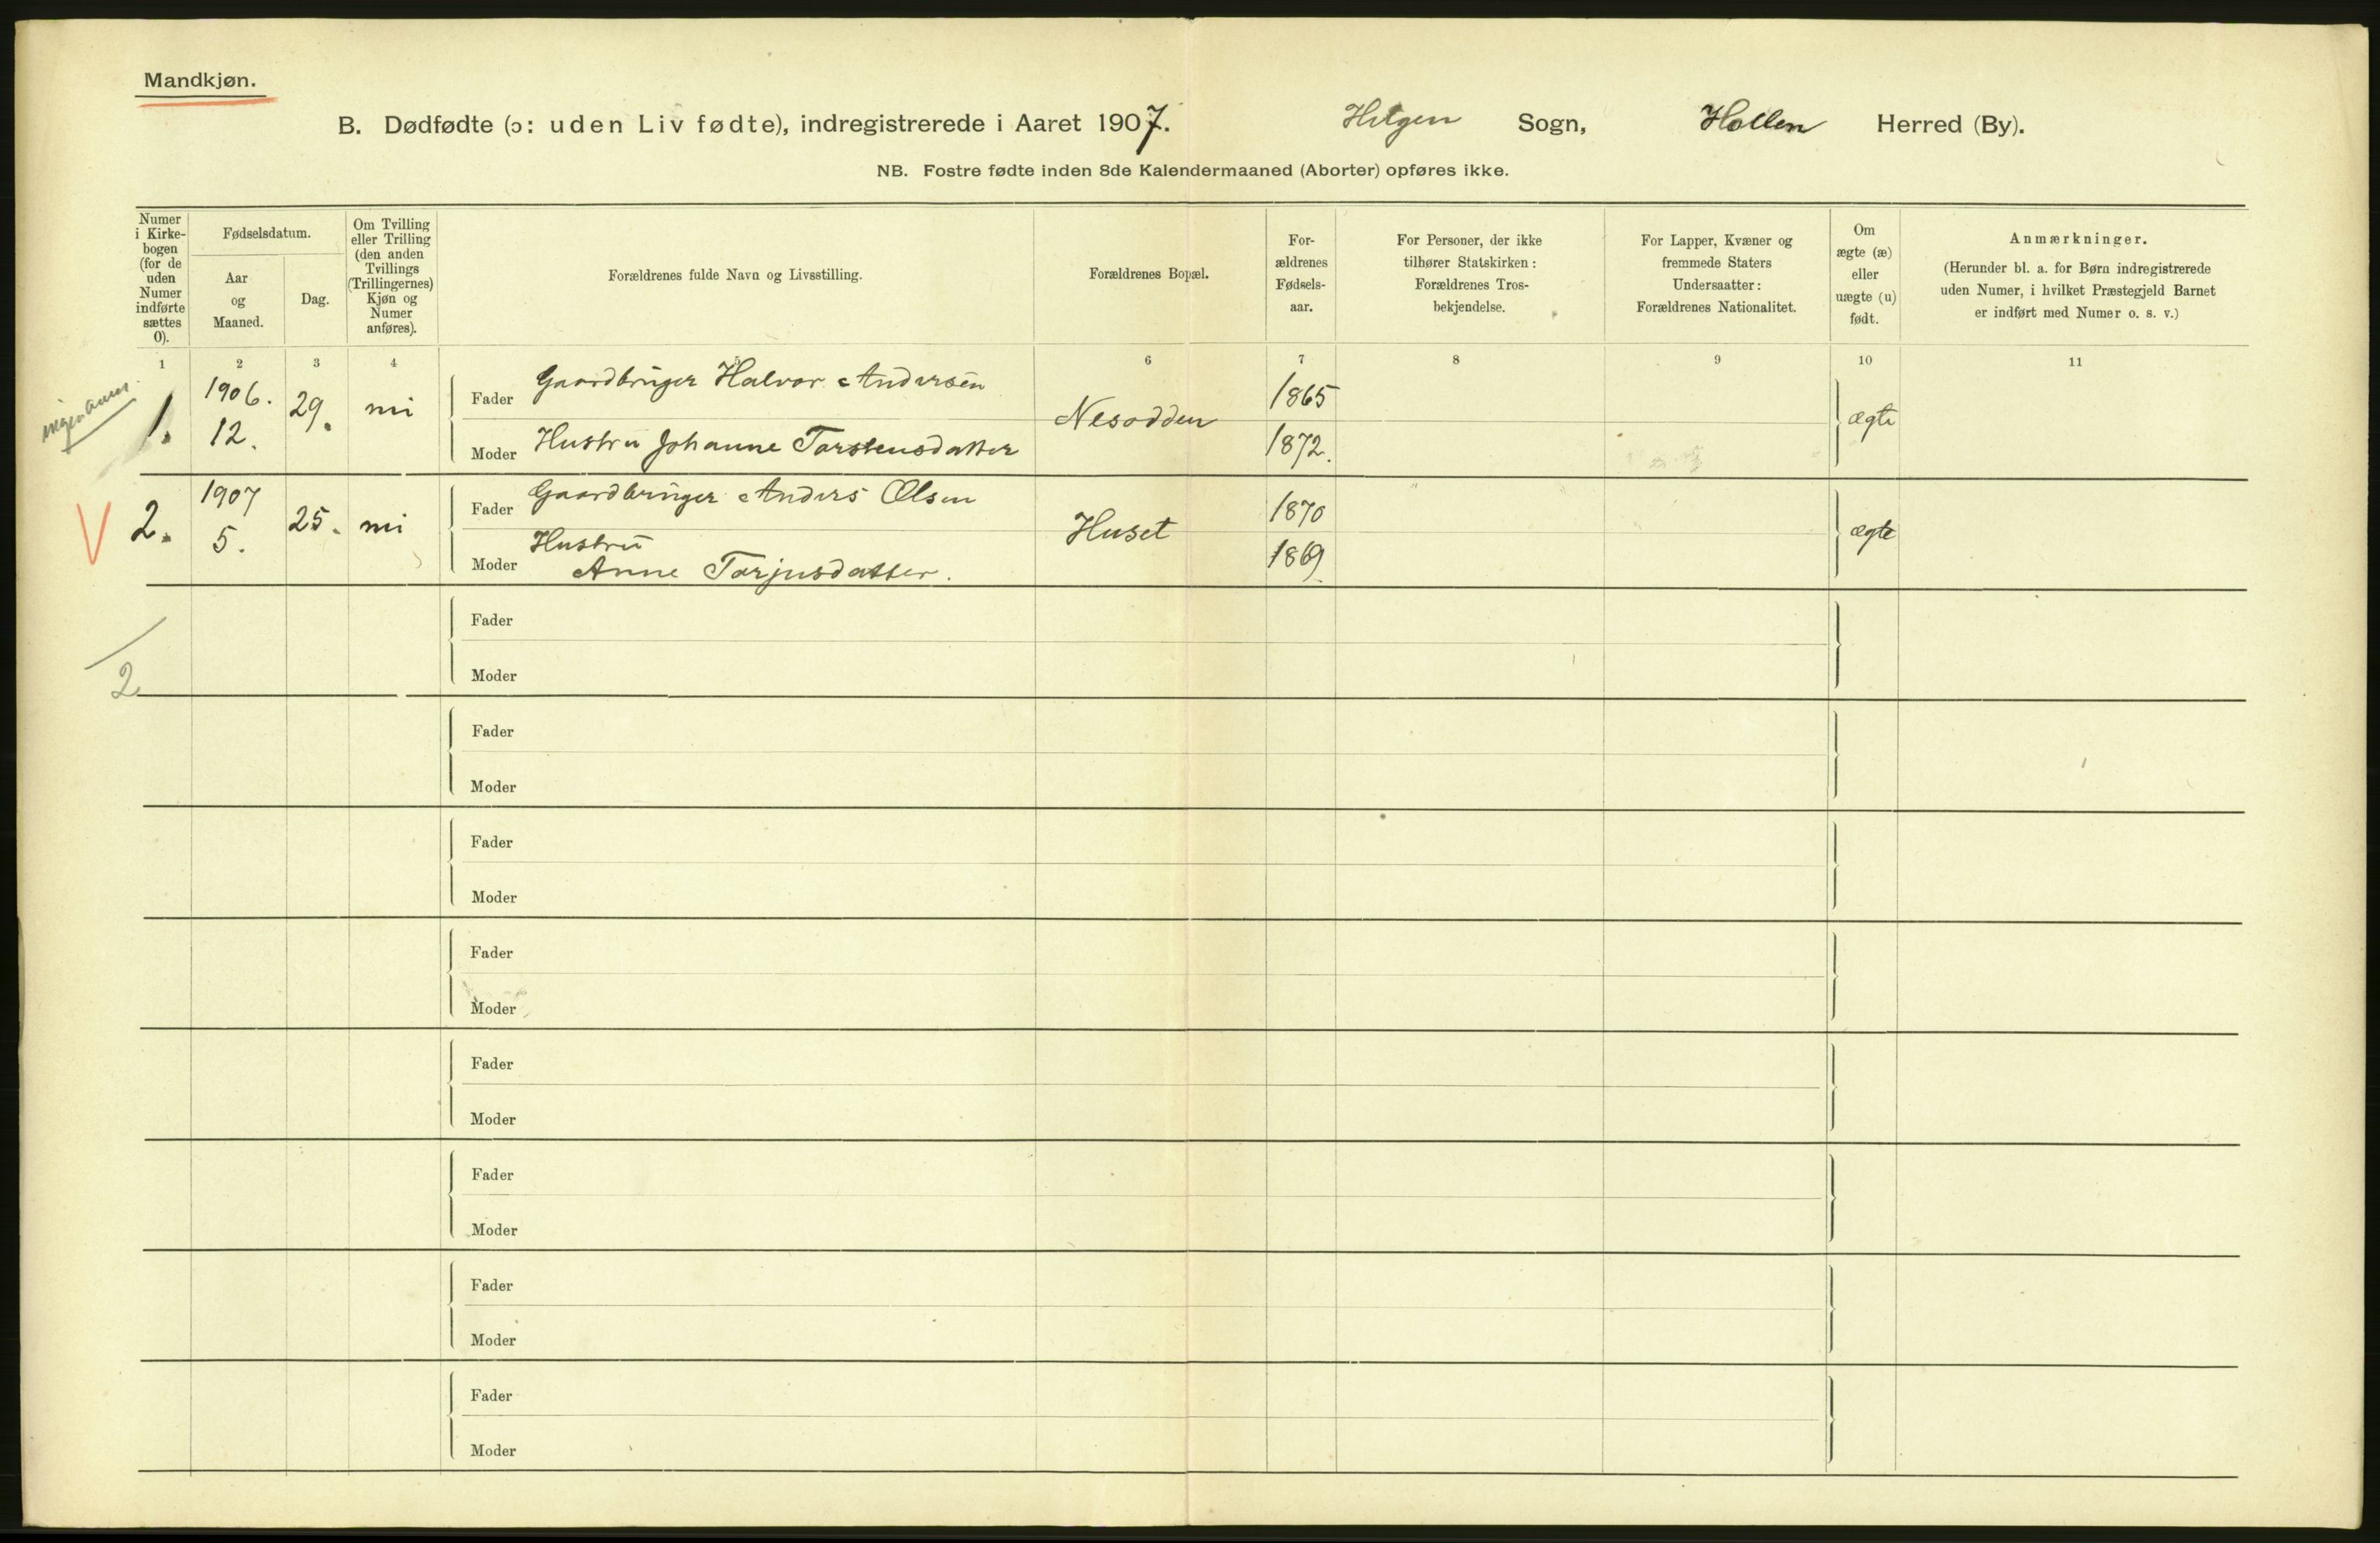 Mandkjøn.
B. Dødfødte (ɔ: uden Liv fødte), indregistrerede i Aaret 1907. Helgen Sogn, Hollen Herred (By).
NB. Fostre fødte inden 8de Kalendermaaned (Aborter) opføres ikke.
Numer
i Kirke-
bogen
(for de
uden
Numer
indførte
sættes
0).
Fødselsdatum.
Aar
og
Maaned.
Dag.
Om Tvilling
eller Trilling
(den anden
Tvillings
(Trillingernes)
Kjøn og
Numer
anføres).
Forældrenes fulde Navn og Livsstilling.
Forældrenes Bopæl.
For-
ældrenes
Fødsels-
aar.
For Personer, der ikke
tilhører Statskirken:
Forældrenes Tros-
bekjendelse.
For Lapper, Kvæner og
fremmede Staters
Undersaatter:
Forældrenes Nationalitet.
Om
ægte (æ)
eller
uægte (u)
født.
Anmærkninger.
(Herunder bl. a. for Børn indregistrerede
uden Numer, i hvilket Præstegjeld Barnet
er indført med Numer o. s. v.)
1 2 3 4 5 6 7 8 9 10 11
1. 1906. 12. 29. nei
Fader Gaardbruger Halvor Andersen 1865
Nesodden ægte
Moder Hustru Johanne Torstensdatter 1872.
V 2. 1907 5. 25. nei
Fader Gaardbruger Anders Olsen 1870
Huset ægte
Hustru
Moder Anne Torjusdatter. 1869
Fader
Moder
2
Fader
Moder
Fader
Moder
Fader
Moder
Fader
Moder
Fader
Moder
Fader
Moder
Fader
Moder